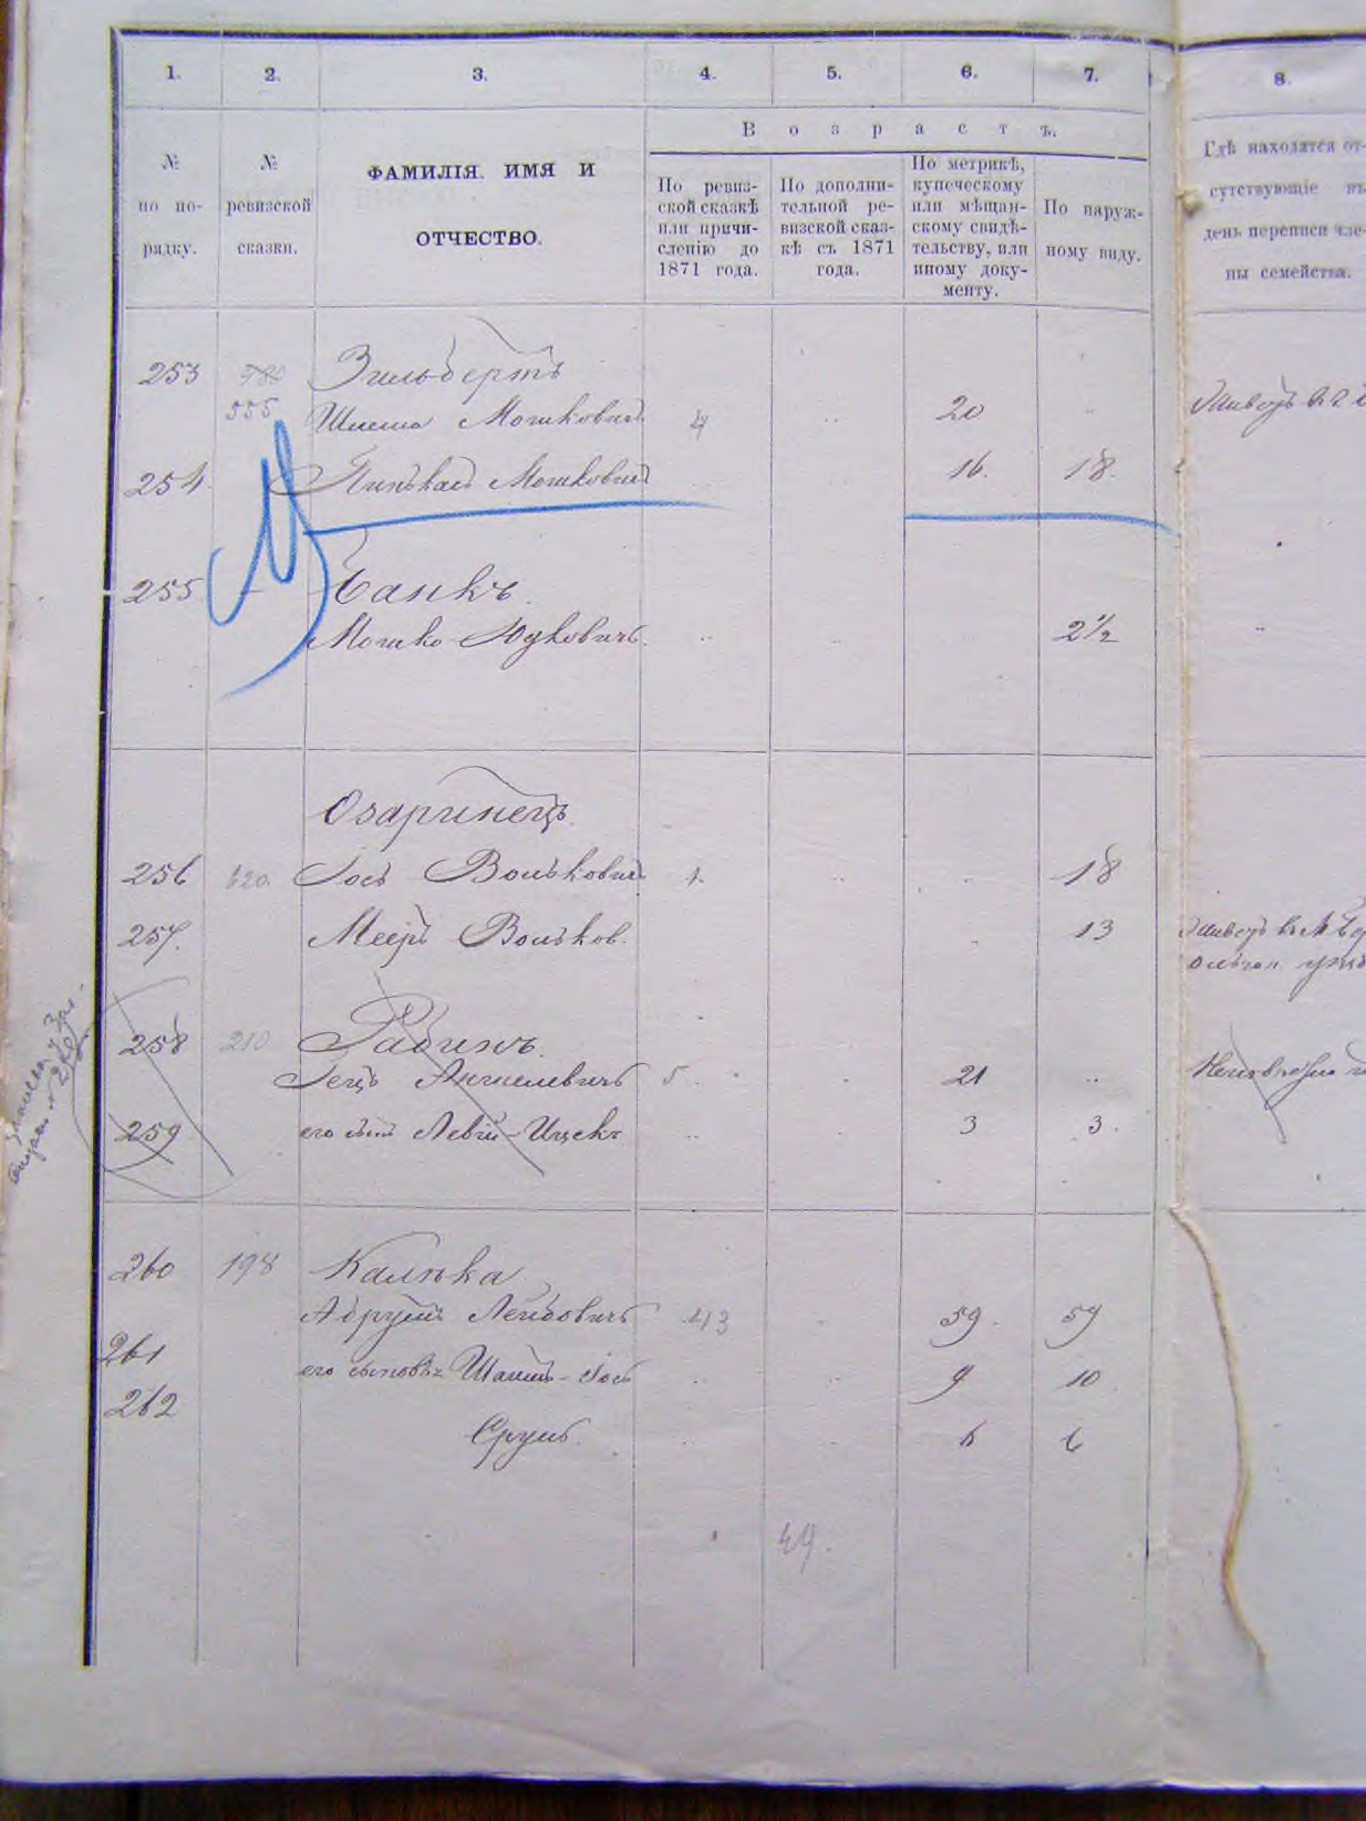 1. 2. 3. 4. 5. 6. 7. 8.
Возрастъ.
№ по по-
рядку.
№
ревизской
сказки.
ФАМИЛІЯ. ИМЯ И
ОТЧЕСТВО.
По ревиз-
ской сказкѣ
или причи-
сленію до
1871 года.
По дополни-
тельной ре-
визской сказ-
кѣ съ 1871
года.
По метрикѣ,
купеческому
или мѣщан-
скому свидѣ-
тельству, или
иному доку-
менту.
По наруж-
ному виду.
Гдѣ находятся от-
сутствующіе въ
день переписи чле-
ны семейства.
253 Зильберть
555 Шлема Мошковичъ 4 20
254 Пинькасъ Мошковичъ 16. 18.
255 Банкъ
Мошко Юдковичъ 2½
Озаринецъ
256 620. Іосъ Вольковичъ 1. 18
257. Мееръ Вольков. 13
258 210 Рабинъ
Герцъ Аншелевичъ 5 21
259 его сынъ Левій-Ицекъ 3 3.
260 198 Калика
Абрумъ Лейбовичъ 43 59. 59
261 его сыновья Шаимъ-Іось 9 10
262 Срумъ 6 6
49.